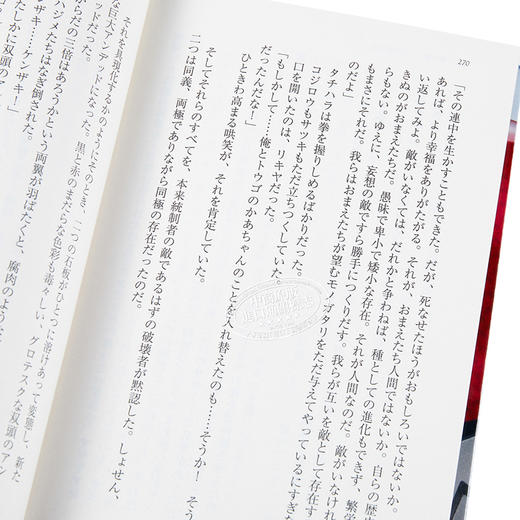 270
「その連中を生かすこともできた。だが、死なせたほうがおもしろいではないか。
あれば、より幸福をありがたがる。それが、おまえたち人間ではないか。自らの歴
い返してみよ。敵がいなくては、だれかと争わねば、種としての進化もできず、繁
きぬのがおまえたちだ。愚昧で卑小で矮小な存在。それが人間なのだ。敵がいなけれ
らもない。ゆえに、妄想の敵ですら勝手につくりだす。我らが互いを敵として存在す
もまさにそれだ。我らはおまえたちが望むモノガタリをただ与えてやっているにすぎ
のだよ」
タチハラは拳を握りしめるばかりだった。
コジロウもサツキもただ立ちつくしていた。
口を開いたのは、リキヤだった。
「もしかして……俺とトウゴのかあちゃんのことを入れ替えたのも……そうか！　そう
だったんだな！」
ひときわ高まる哄笑が、それを肯定していた。
そしてそれらのすべてを、本来統制者の敵であるはずの破壊者が黙認した。しょせん、
二つは同義、両極でありながら同極の存在だったのだ。
それを具現化するかのようにそのとき、二つの石板がひとつに溶けあって変態し、新た
な巨大アンデッドになった。黒と赤のまだらな色彩も毒々しい、グロテスクな双頭のアン
だった。
らの三倍はあろうかという両翼が羽ばたくと、腐肉のような
ハジメたちはなぎ倒された。
……ケンザキ！」
たしかに双頭の